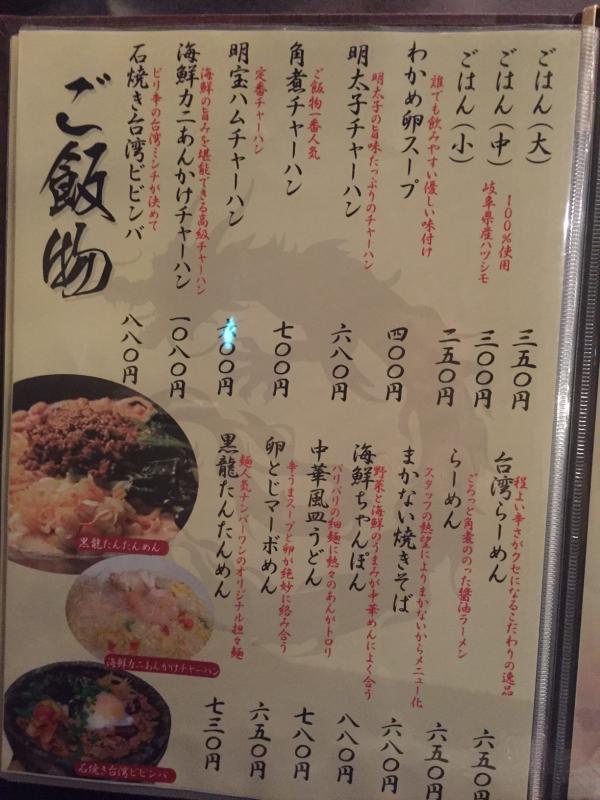 ご飯物
ごはん(大)
三五〇円
ごはん(中)
三〇〇円
100%使用
岐阜県産ハツシモ
ごはん(小)
二五〇円
誰でも飲みやすい優しい味付け
わかめ卵スープ
四〇〇円
明太子の旨味たっぷりのチャーハン
明太子チャーハン
六八〇円
ご飯物一番人気
角煮チャーハン
七〇〇円
定番チャーハン
明宝ハムチャーハン
〇〇円
海鮮の旨みを堪能できる高級チャーハン
海鮮カニあんかけチャーハン
一〇八〇円
ピリ辛の台湾ミンチが決めて
石焼き台湾ビビンバ
八八〇円
程よい辛さがクセになるこだわりの逸品
台湾らーめん
六五〇円
ごろっと角煮ののった醤油ラーメン
らーめん
六五〇円
スタッフの熱望によりまかないからメニュー化
まかない焼きそば
六八〇円
野菜と海鮮のうまみが中華めんによく合う
海鮮ちゃんぽん
八八〇円
パリパリの細麺に熱々のあんがトロリ
中華風皿うどん
七八〇円
辛うまスープと卵が絶妙に絡み合う
卵とじマーボめん
六五〇円
麺人気ナンバーワンのオリジナル担々麺
黒龍たんたんめん
七三〇円
黒龍たんたんめん
海鮮カニあんかけチャーハン
石焼き台湾ビビンバ